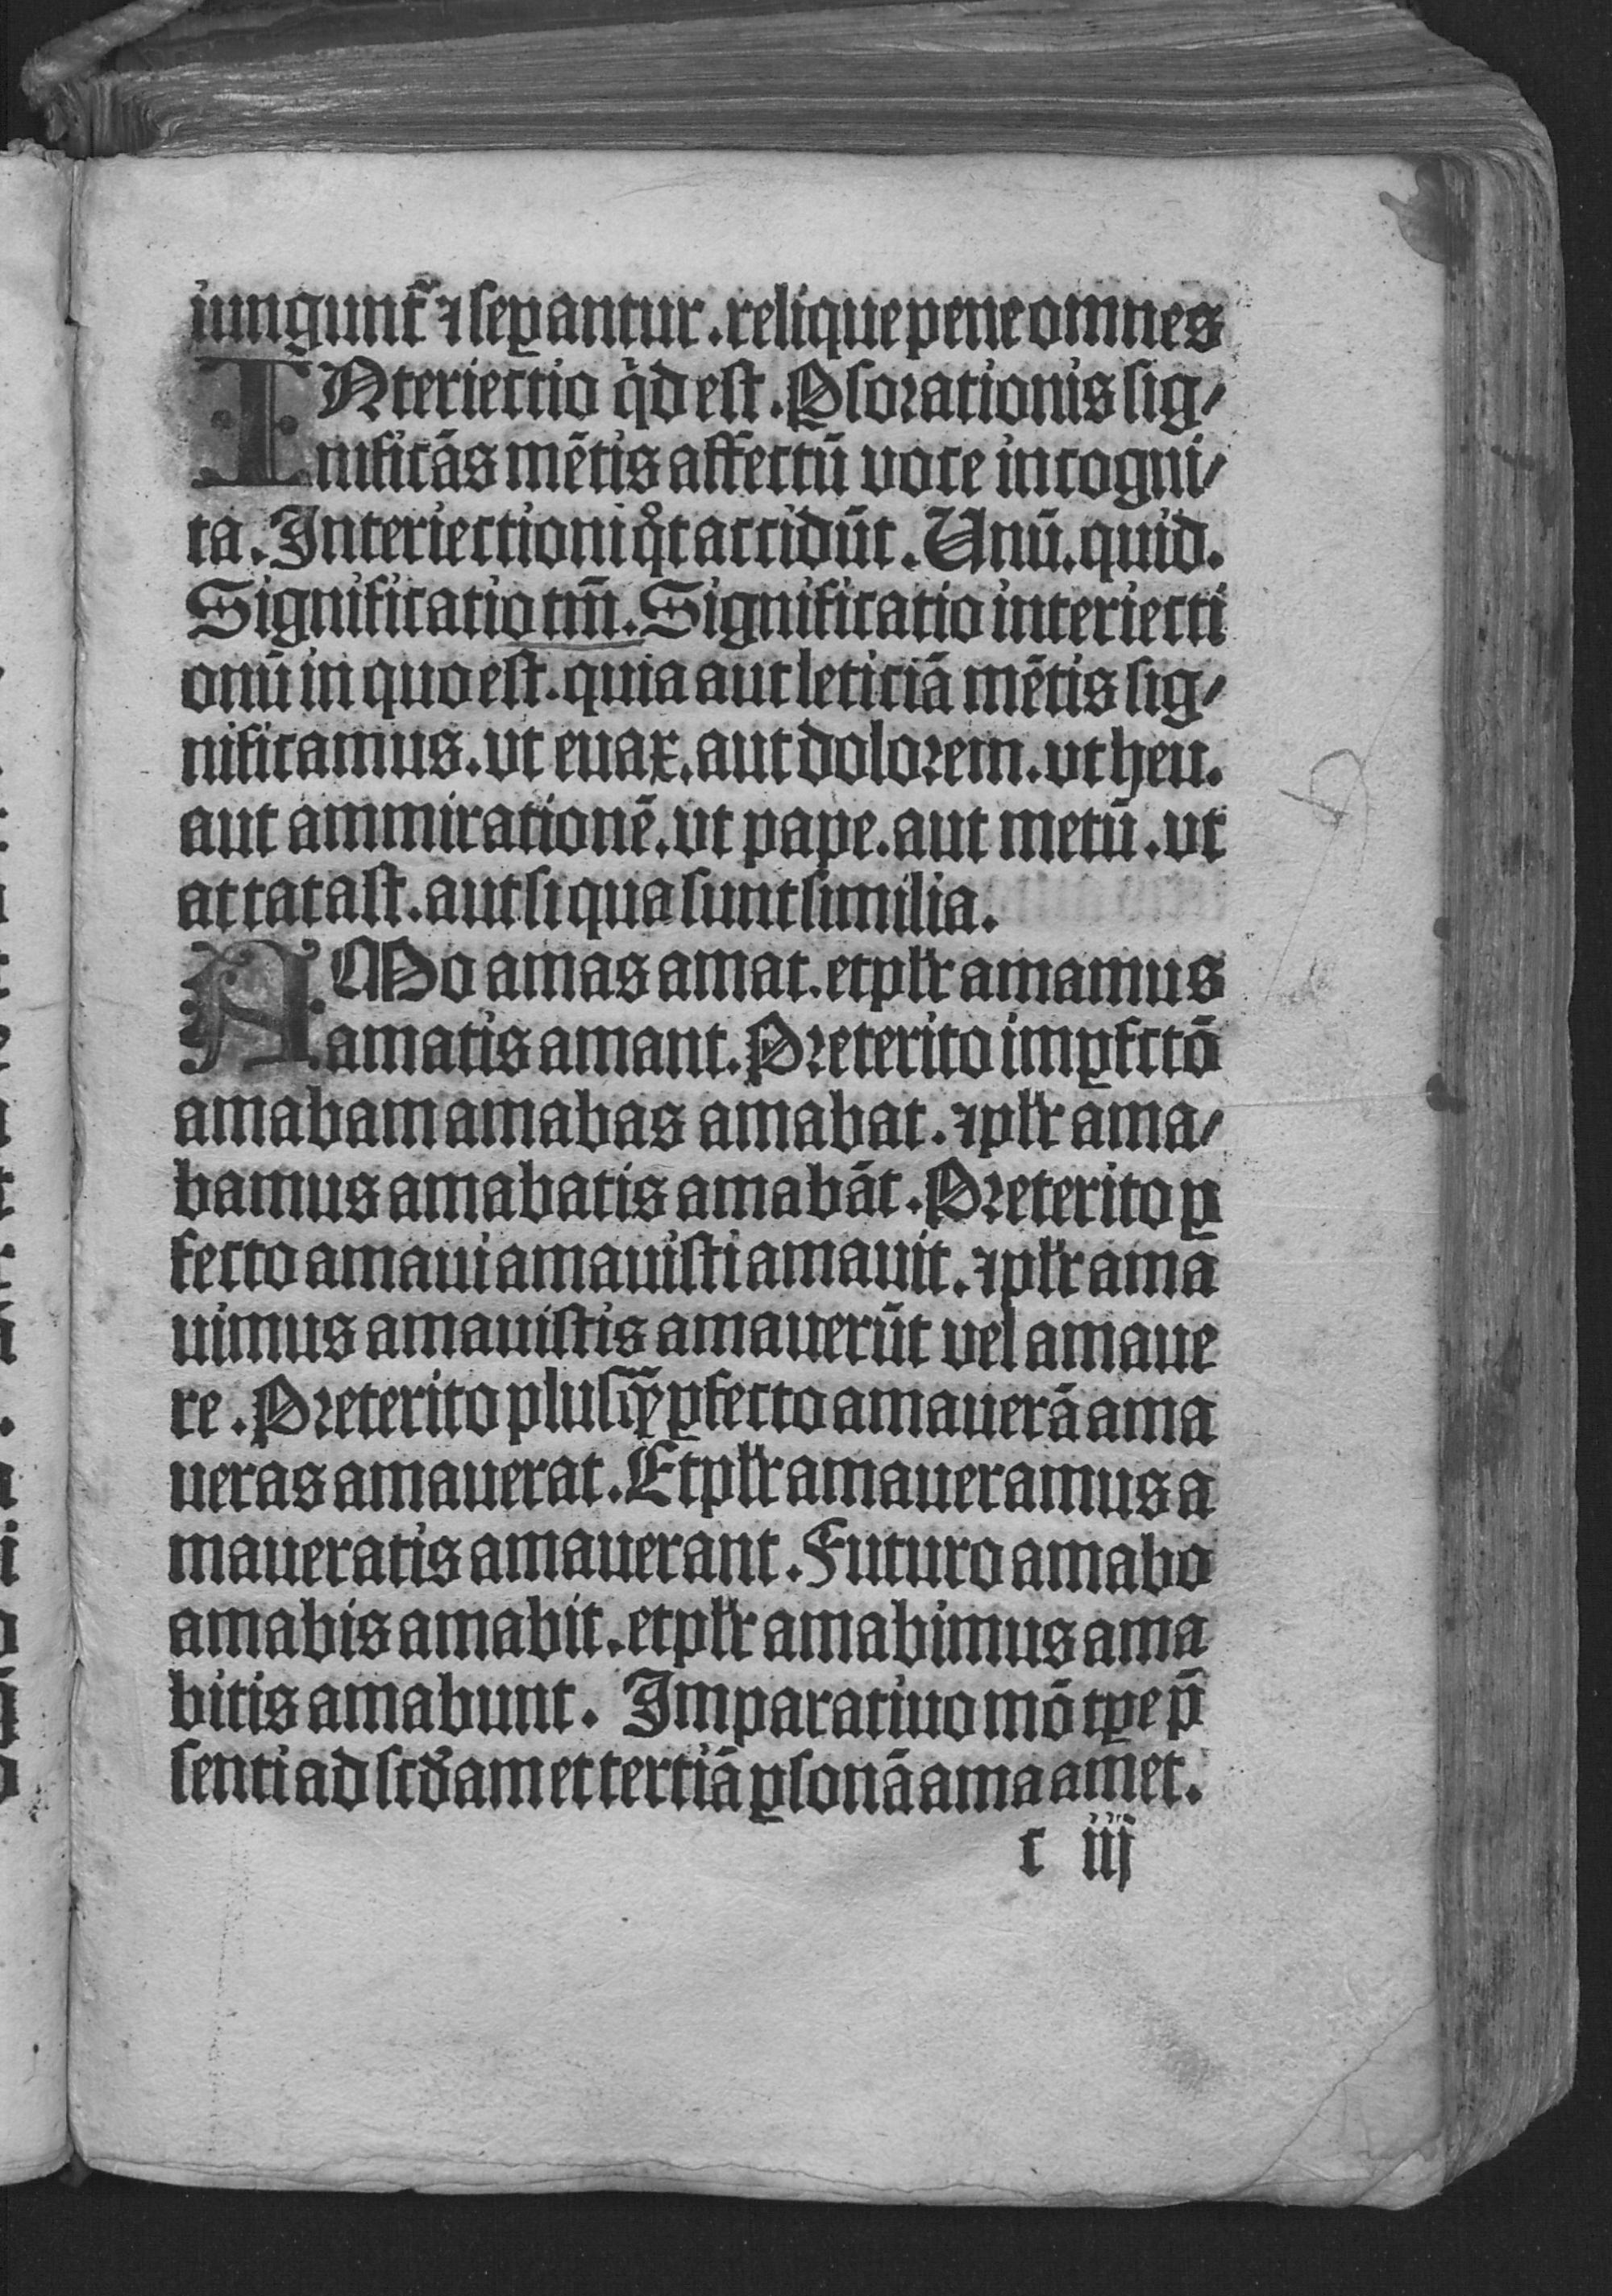 iungunt᷑ ⁊ seꝑantur. relique pene omnes
INteriectio qͥd est. Ps orationis sig⸗
nificās mētis affectū voce incogni⸗
ta. Interiectioni qͦt accidūt. Unū. quid.
Significatio tm̄. Significatio interiecti
onū in quo est. quia aut leticiā mētis sig⸗
nificamus. vt euax. aut dolorem. vt heu.
aut ammirationē. vt pape. aut metū. vt
attatast. aut si qua sunt similia.
AMo amas amat. et plr̄ amamus
amatis amant. Preterito imꝑfctō
amabam amabas amabat. ⁊ plr̄ ama⸗
bamus amabatis amabāt. Preterito ꝑ
fecto amaui amauisti amauit. ⁊ plr̄ ama
uimus amauistis amauerūt vel amaue
re. Preterito plusqꝫ̄ ꝑfecto amauerā ama
ueras amauerat. Et plr̄ amaueramus a
maueratis amauerant. Futuro amabo
amabis amabit. et plr̄ amabimus ama
bitis amabunt. Imparatiuo mō tꝑe p̄
senti ad scd̄am et terciā ꝑsonā ama amet.
c iij